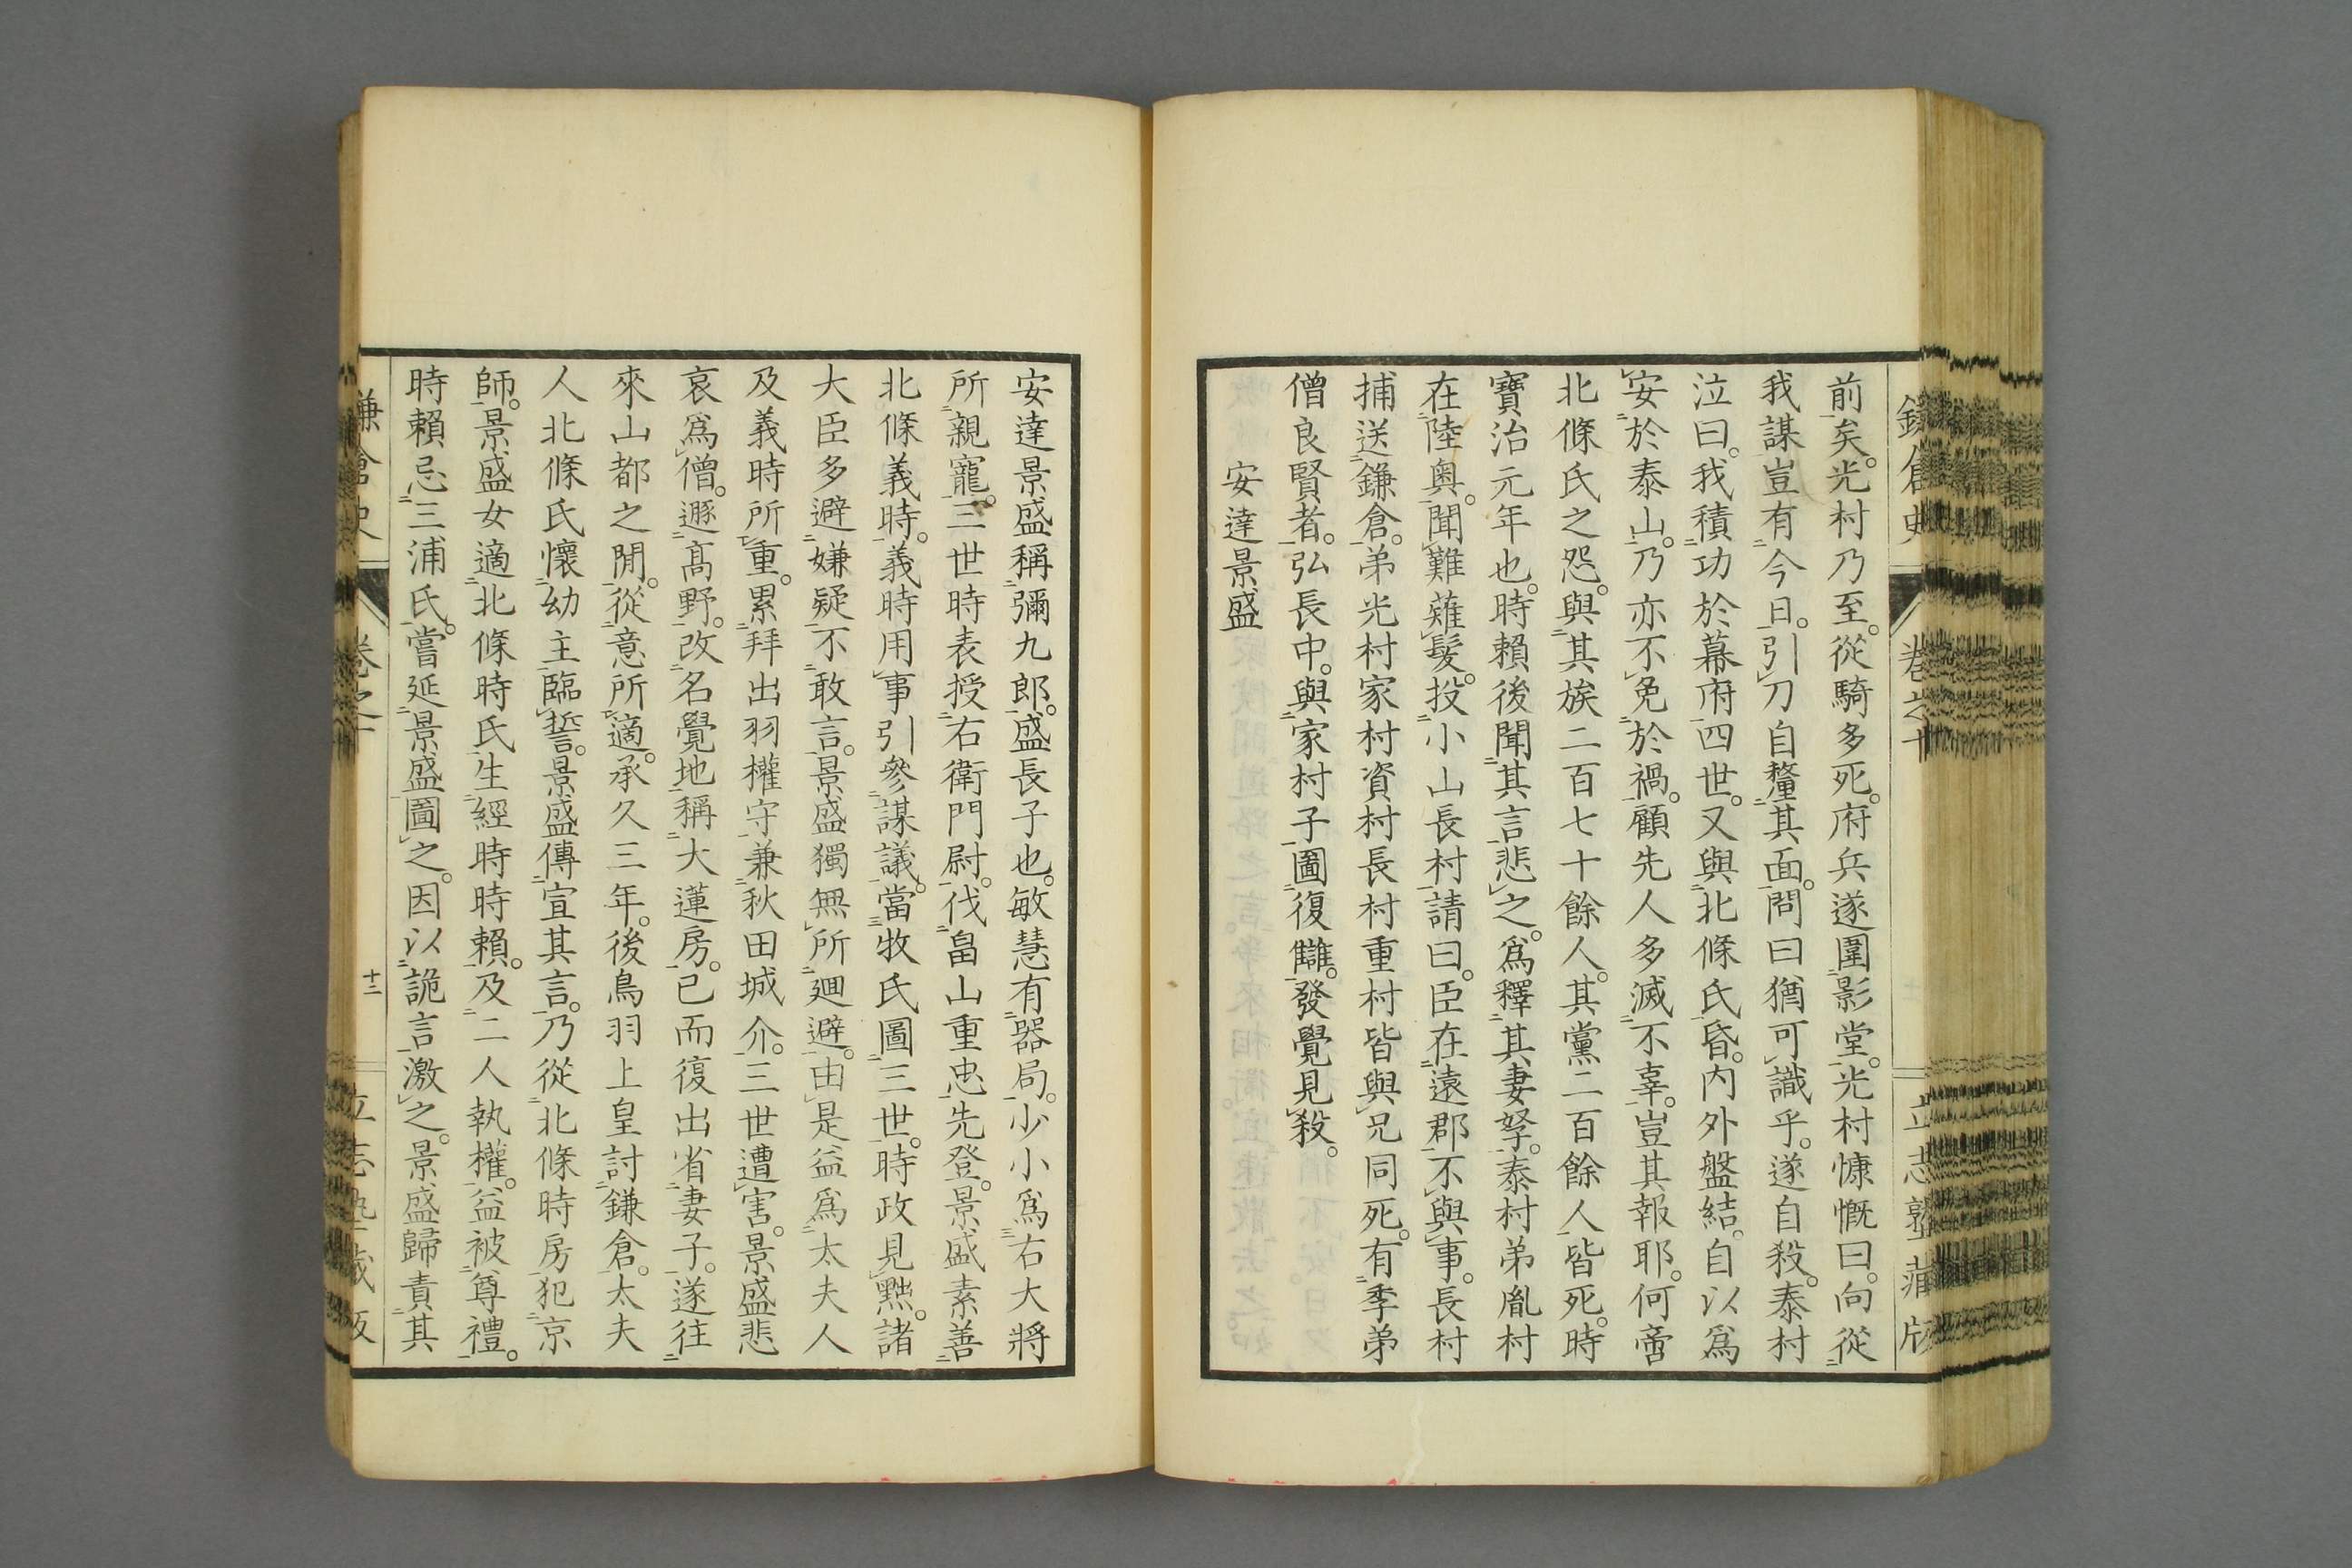 鎌倉史 卷之十 立志塾藏版
前矣。光村乃至。從騎多死。府兵遂圍影堂。光村慷慨曰。向從
我謀豈有今日。引刀自釐其面。問曰猶可識乎。遂自殺。泰村
泣曰。我積功於幕府四世。又與北條氏昏。内外盤結。自以爲
安於泰山。乃亦不免於禍。顧先人多滅不辜。豈其報耶。何啻
北條氏之怨。與其族二百七十餘人。其黨二百餘人皆死。時
寶治元年也。時賴後聞其言悲之。爲釋其妻孥。泰村弟胤村
在陸奥。聞難薙髮。投小山長村請曰。臣在遠郡不與事。長村
捕送鎌倉。弟光村家村資村長村重村皆與兄同死。有季弟
僧良賢者。弘長中。與家村子圖復讎。發覺見殺。
安達景盛
安達景盛稱彌九郎。盛長子也。敏慧有器局。少小爲右大將
所親寵。三世時表授右衛門尉。伐畠山重忠先登。景盛素善
北條義時。義時用事引參謀議。當牧氏圖三世。時政見黜。諸
大臣多避嫌疑不敢言。景盛獨無所廻避。由是益爲太夫人
及義時所重。累拜出羽權守兼秋田城介。三世遭害。景盛悲
哀爲僧。遯高野。改名覺地稱大蓮房。已而復出省妻子。遂往
來山都之閒。從意所適。承久三年。後鳥羽上皇討鎌倉。太夫
人北條氏懷幼主臨誓。景盛傳宣其言。乃從北條時房犯京
師。景盛女適北條時氏生經時時賴。及二人執權。益被尊禮。
時賴忌三浦氏。嘗延景盛圖之。因以詭言激之。景盛歸責其
鎌倉史 卷之十 十二 立志塾藏版